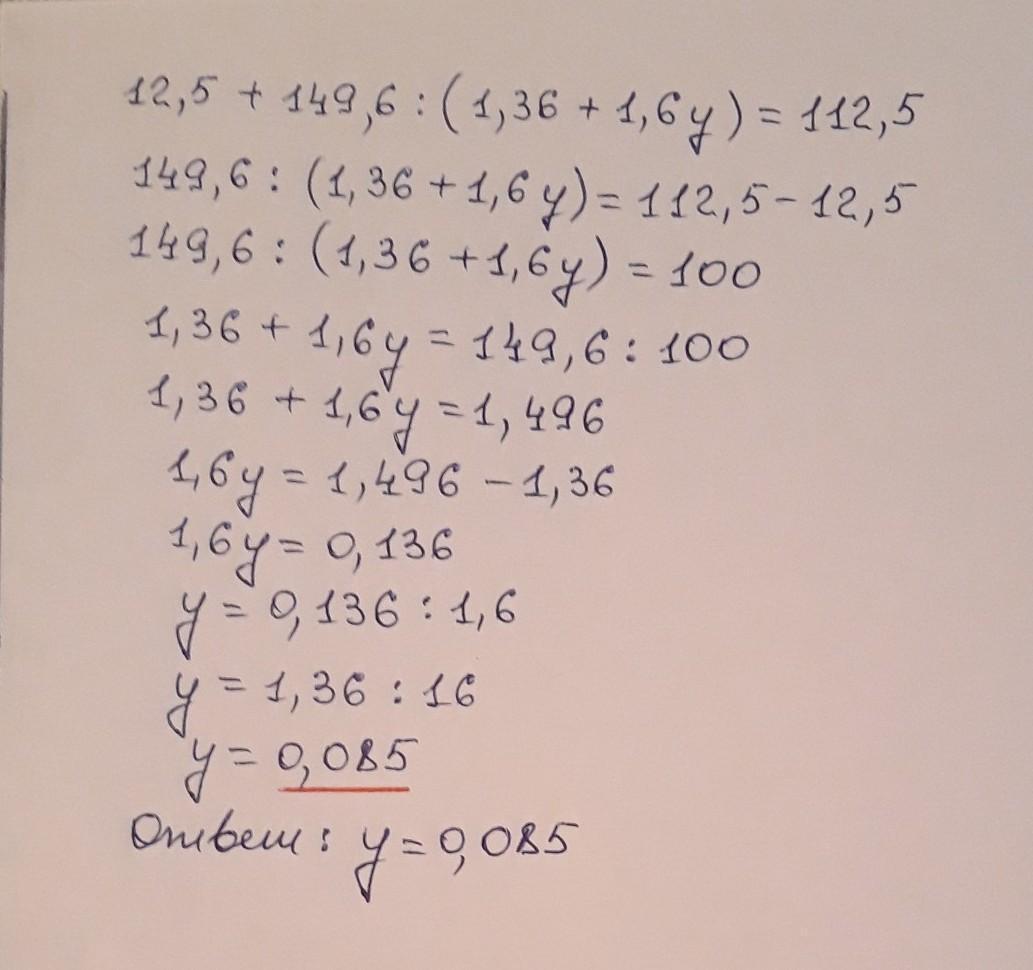 12,5 + 149,6 : (1,36 + 1,6y) = 112,5
149,6 : (1,36 + 1,6y) = 112,5 - 12,5
149,6 : (1,36 + 1,6y) = 100
1,36 + 1,6y = 149,6 : 100
1,36 + 1,6y = 1,496
1,6y = 1,496 - 1,36
1,6y = 0,136
y = 0,136 : 1,6
y = 1,36 : 16
y = 0,085
Ответ: y = 0,085